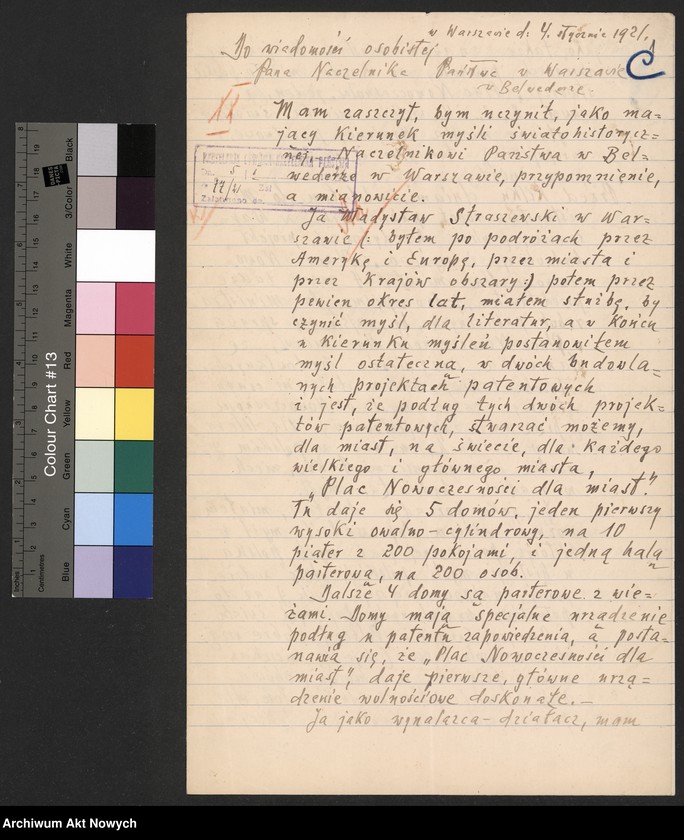 w Warszawie d. 4. stycznia 1921.
Do wiadomości osobistej
Pana Naczelnika Państwa w Warszawie
w Belvederze.
Mam zaszczyt, bym uczynił, jako ma=
jący kierunek myśli światohistorycz=
nej, Naczelnikowi Państwa w Bel=
wederze w Warszawie, przypomnienie,
a mianowicie.
Ja Władysław Straszewski w War=
szawie (: byłem po podróżach przez
Amerykę i Europę, przez miasta i
przez krajów obszary:) potem przez
pewien okres lat, miałem służbę, by
czynić myśl, dla literatur, a w końcu
z kierunku myśleń postanowiłem
myśl ostateczną, w dwóch budowla=
nych projektach patentowych
i jest, że podług tych dwóch projek=
tów patentowych, stwarzać możemy,
dla miast, na świecie, dla każdego
wielkiego i głównego miasta,
„Plac Nowoczesności dla miast."
Tu daje się 5 domów, jeden pierwszy
wysoki owalno-cylindrowy, na 10
piater z 200 pokojami, i jedną halą
parterową, na 200 osób.
Dalsze 4 domy są parterowe z wie=
żami. Domy mają specjalne urządzenie
podług u patentu zapowiedzenia, a posta=
nawia się, że „Plac Nowoczesności dla
miast", daje pierwsze, główne urzą=
dzenie wolnościowe doskonałe.—
Ja jako wynalazca-działacz, mam
Colour Chart #13
Black
3/Color
White
Magenta
Red
Yellow
Green
Cyan
Blue
Inches
Centimetres
DANES
PICTA
Archiwum Akt Nowych